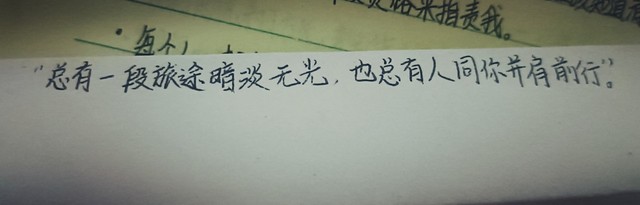 指责我。
·每个人
“总有一段旅途暗淡无光，也总有人同你并肩前行”。